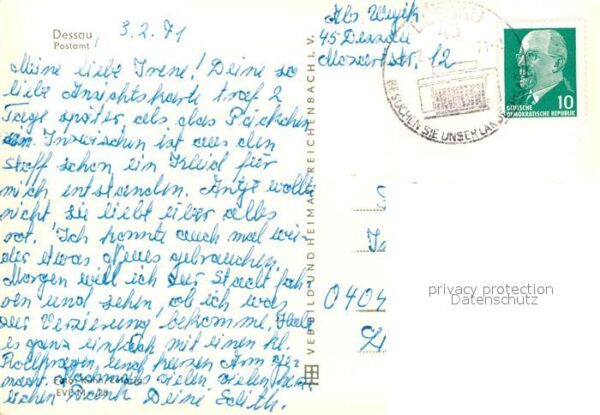 Dessau
Postamt
3.2.71
Meine liebe Irene! Deine so
liebe Ansichtskarte traf 2
Tage später als das Päckchen
ein. Inzwischen ist aus dem
Stoff schon ein Kleid für
mich entstanden. Antje wollte
nicht sie liebt über alles
rot. Ich konnte auch mal wie-
der etwas Neues gebrauchen.
Morgen will ich zur Stadt fah-
ren und sehen, ob ich was
zur Verzierung bekomme. Habe
es ganz einfach mit einen kl.
Rollkragen und kurzen Arm ge-
macht. vielen vielen herz-
lichen Dank Deine Edith.
VEB BILD UND HEIMAT REICHENBACH I. V.
Abs.
45 Dessau
Mozartstr. 12
DESSAU
BESUCHEN SIE UNSER
10
DEUTSCHE
DEMOKRATISCHE REPUBLIK
privacy protection
Datenschutz